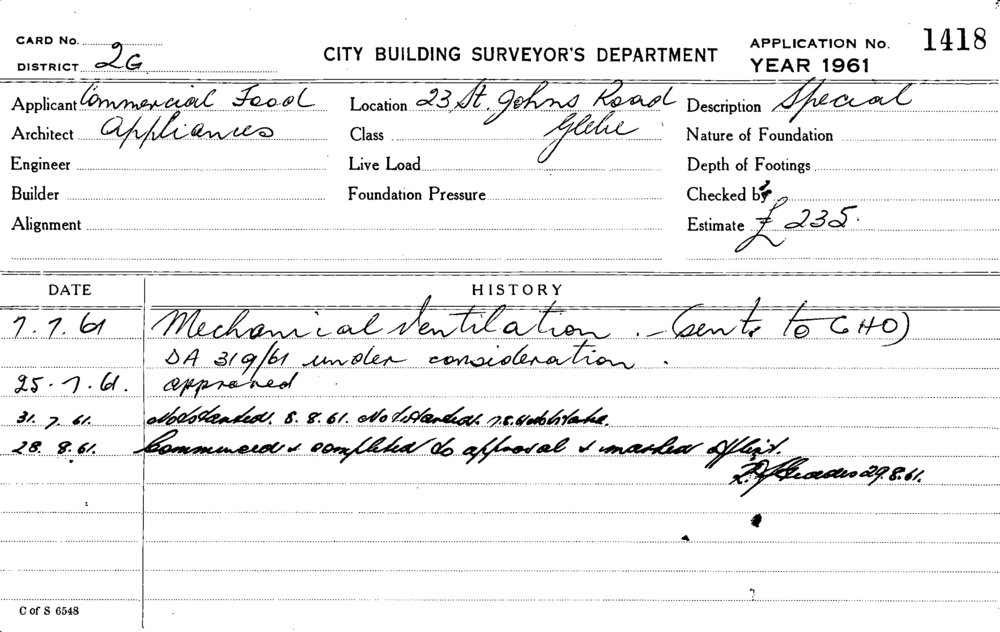 CARD No.
DISTRICT 2G
CITY BUILDING SURVEYOR'S DEPARTMENT
APPLICATION No. 1418
YEAR 1961
Applicant Commercial Food
Location 23 St. Johns Road
Description Special
Architect Appliances
Class Glebe
Nature of Foundation
Engineer
Live Load
Depth of Footings
Builder
Foundation Pressure
Checked by
Alignment
Estimate £ 235.
DATE
HISTORY
7.7.61 Mechanical Ventilation. - (sent to CHO)
DA 319/61 under consideration.
25.7.61. approved
31.7.61. Not started. 8.8.61. Not started.
28.8.61. Commenced & completed to approval & marked off list.
29.8.61.
C of S 6548